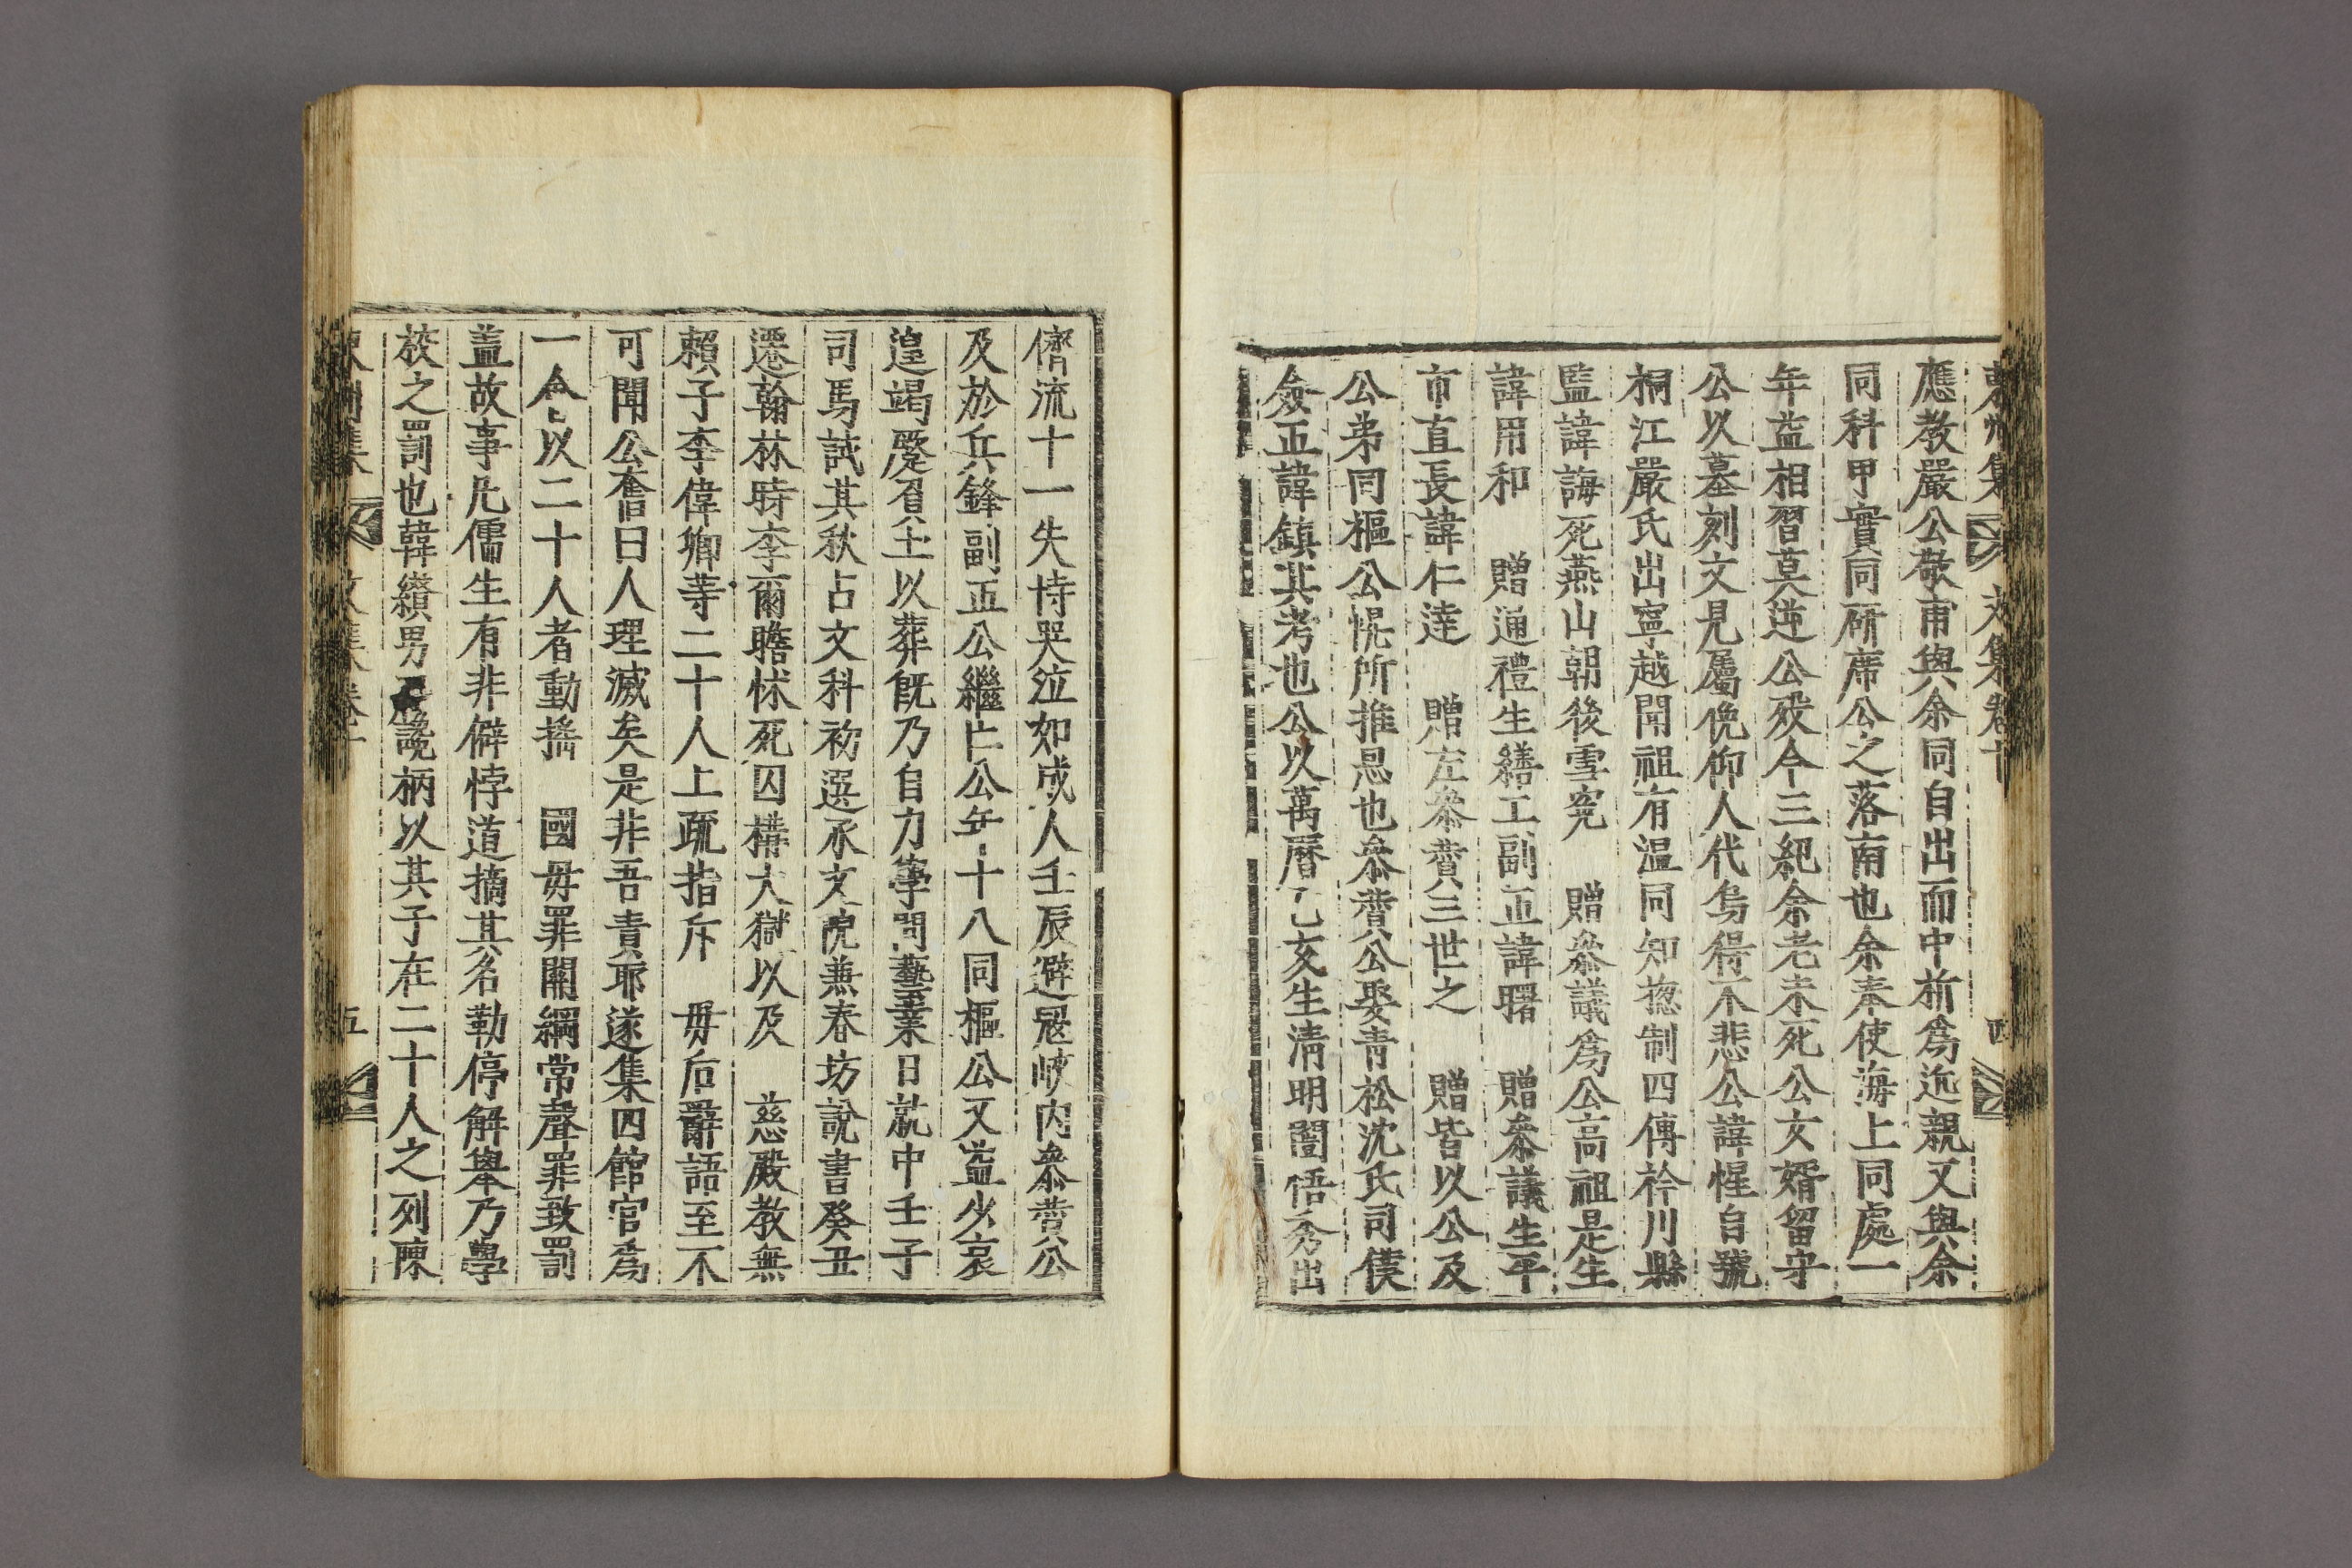 東州集 文集卷十 四
應教嚴公敬甫與余同自出而中析爲近親又與余
同科甲實同硏席公之落南也余奉使海上同處一
年益相習莫逆公歿今三紀余老未死公女婿留守
公以墓刻文見屬俛仰人代烏得不悲公諱惺自號
桐江嚴氏出寧越開祖有溫同知揔制四傳衿川縣
監諱誨死燕山朝後雪寃 贈叅議爲公高祖是生
諱用和 贈通禮生繕工副正諱曙 贈叅議生平
市直長諱仁達 贈左叅贊三世之 贈皆以公及
公弟同樞公愰所推恩也叅贊公娶靑松沈氏司僕
僉正諱鎮其考也公以萬曆乙亥生淸明闓悟秀出
儕流十一失恃哭泣如成人壬辰避冦峽內叅贊公
及於兵鋒副正公繼亡公年十八同樞公又益少哀
遑竭蹙負土以葬旣乃自力學問藝業日就中壬子
司馬試其秋占文科初選承文院兼春坊說書癸丑
遷翰林時李爾瞻怵死囚構大獄以及 慈殿敎無
賴子李偉卿等二十人上疏指斥 母后辭語至不
可聞公奮曰人理滅矣是非吾責耶遂集四館官爲
一会以二十人者動搖 國母罪關綱常聲罪致罰
盖故事凡儒生有非僻悖道摘其名勒停解擧乃學
校之罰也韓纘男 讒柄以其子在二十人之列陳
東州集 文集卷十 五